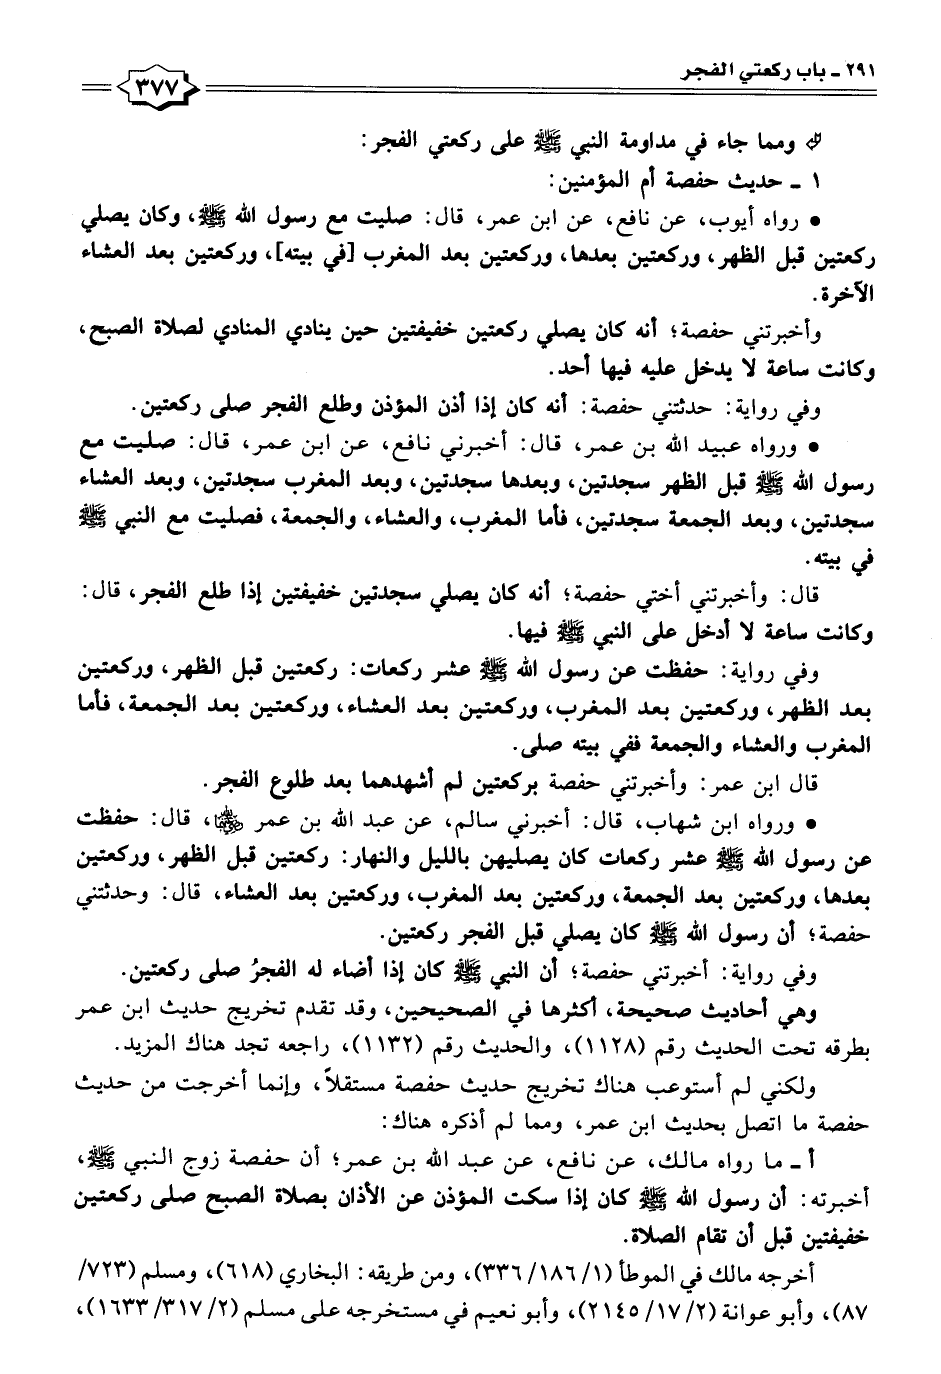 ٢٩١ - باب ركعتي الفجر
٣٧٧
ومما جاء في مداومة النبي ﷺ على ركعتي الفجر:
١ - حديث حفصة أم المؤمنين:
• رواه أيوب، عن نافع، عن ابن عمر، قال: صليت مع رسول الله ﷺ، وكان يصلي
ركعتين قبل الظهر، وركعتين بعدها، وركعتين بعد المغرب [في بيته]، وركعتين بعد العشاء
الآخرة.
وأخبرتني حفصة؛ أنه كان يصلي ركعتين خفيفتين حين ينادي المنادي لصلاة الصبح،
وكانت ساعة لا يدخل عليه فيها أحد.
وفي رواية: حدثتني حفصة: أنه كان إذا أذن المؤذن وطلع الفجر صلى ركعتين.
• ورواه عبيد الله بن عمر، قال: أخبرني نافع، عن ابن عمر، قال: صليت مع
رسول الله ﷺ قبل الظهر سجدتين، وبعدها سجدتين، وبعد المغرب سجدتين، وبعد العشاء
سجدتين، وبعد الجمعة سجدتين، فأما المغرب، والعشاء، والجمعة، فصليت مع النبي ﷺ
في بيته.
قال: وأخبرتني أختي حفصة؛ أنه كان يصلي سجدتين خفيفتين إذا طلع الفجر، قال:
وكانت ساعة لا أدخل على النبي ﷺ فيها.
وفي رواية: حفظت عن رسول الله ﷺ عشر ركعات: ركعتين قبل الظهر، وركعتين
بعد الظهر، وركعتين بعد المغرب، وركعتين بعد العشاء، وركعتين بعد الجمعة، فأما
المغرب والعشاء والجمعة ففي بيته صلى.
قال ابن عمر: وأخبرتني حفصة بركعتين لم أشهدهما بعد طلوع الفجر.
• ورواه ابن شهاب، قال: أخبرني سالم، عن عبد الله بن عمر رضي الله عنهما، قال: حفظت
عن رسول الله ﷺ عشر ركعات كان يصليهن بالليل والنهار: ركعتين قبل الظهر، وركعتين
بعدها، وركعتين بعد الجمعة، وركعتين بعد المغرب، وركعتين بعد العشاء، قال: وحدثتني
حفصة؛ أن رسول الله ﷺ كان يصلي قبل الفجر ركعتين.
وفي رواية: أخبرتني حفصة؛ أن النبي ﷺ كان إذا أضاء له الفجرُ صلى ركعتين.
وهي أحاديث صحيحة، أكثرها في الصحيحين، وقد تقدم تخريج حديث ابن عمر
بطرقه تحت الحديث رقم (١١٢٨)، والحديث رقم (١١٣٢)، راجعه تجد هناك المزيد.
ولكني لم أستوعب هناك تخريج حديث حفصة مستقلاً، وإنما أخرجت من حديث
حفصة ما اتصل بحديث ابن عمر، ومما لم أذكره هناك:
أ - ما رواه مالك، عن نافع، عن عبد الله بن عمر؛ أن حفصة زوج النبي ﷺ،
أخبرته: أن رسول الله ﷺ كان إذا سكت المؤذن عن الأذان بصلاة الصبح صلى ركعتين
خفيفتين قبل أن تقام الصلاة.
أخرجه مالك في الموطأ (١/ ١٨٦/ ٣٣٦)، ومن طريقه: البخاري (٦١٨)، ومسلم (٧٢٣/
٨٧)، وأبو عوانة (٢/ ١٧/ ٢١٤٥)، وأبو نعيم في مستخرجه على مسلم (٢/ ٣١٧/ ١٦٣٣)،